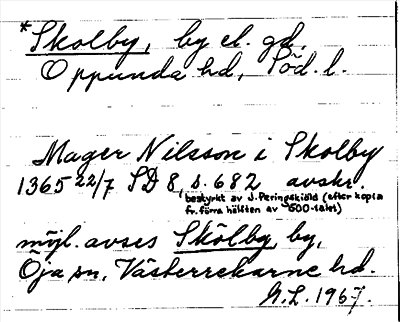 *Skolby, by el. gd,
Oppunda hd, Söd. l.
Mager Nilsson i Skolby
1365 22/7 SD 8, s. 682 avskr.
bestyrkt av J. Peringskiöld (efter kopia
fr. förra hälften av 1500-talet)
möjl. avses Skölby, by,
Öja sn, Västerrekarne hd.
G.L. 1967.